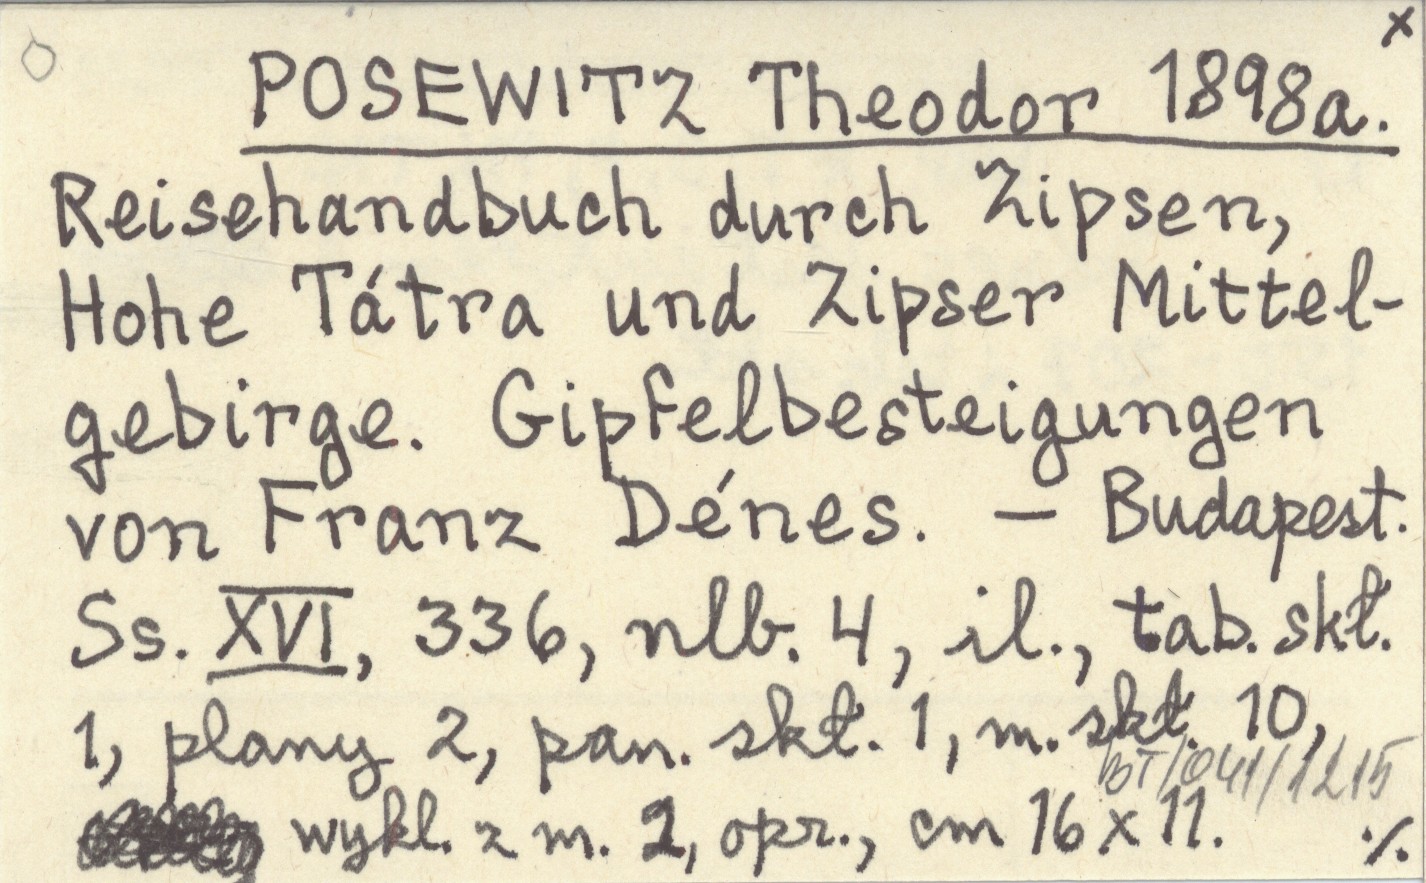 x
POSEWITZ Theodor 1898a.
Reisehandbuch durch Zipsen,
Hohe Tátra und Zipser Mittel-
gebirge. Gipfelbesteigungen
von Franz Dénes. — Budapest.
Ss. XVI, 336, nlb. 4, il., tab. skł.
1, plany 2, pan. skł. 1, m. skł. 10,
BT/041/1215
wykl. z m. 2, opr., cm 16 x 11.
./.